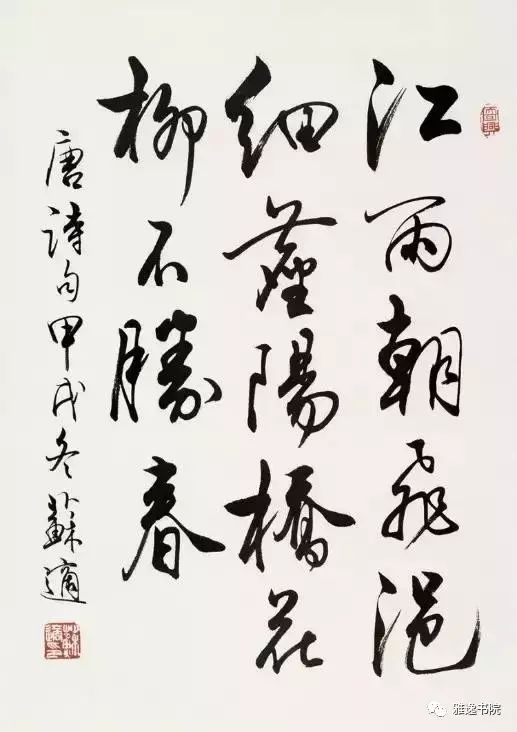 江雨朝飛浥
細塵陽橋花
柳不勝春
唐詩句甲戌冬蘇適
雅逸书院